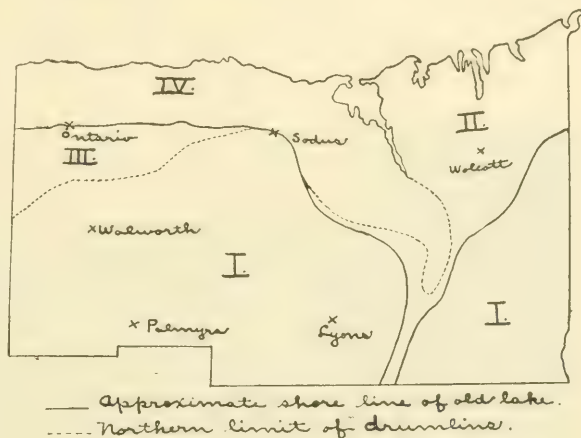 IV.
II.
Ontario
Sodus
III.
Wolcott
Walworth
I.
Palmyra
Lyons
I.
Approximate shore line of old lake.
Northern limit of drumlins.